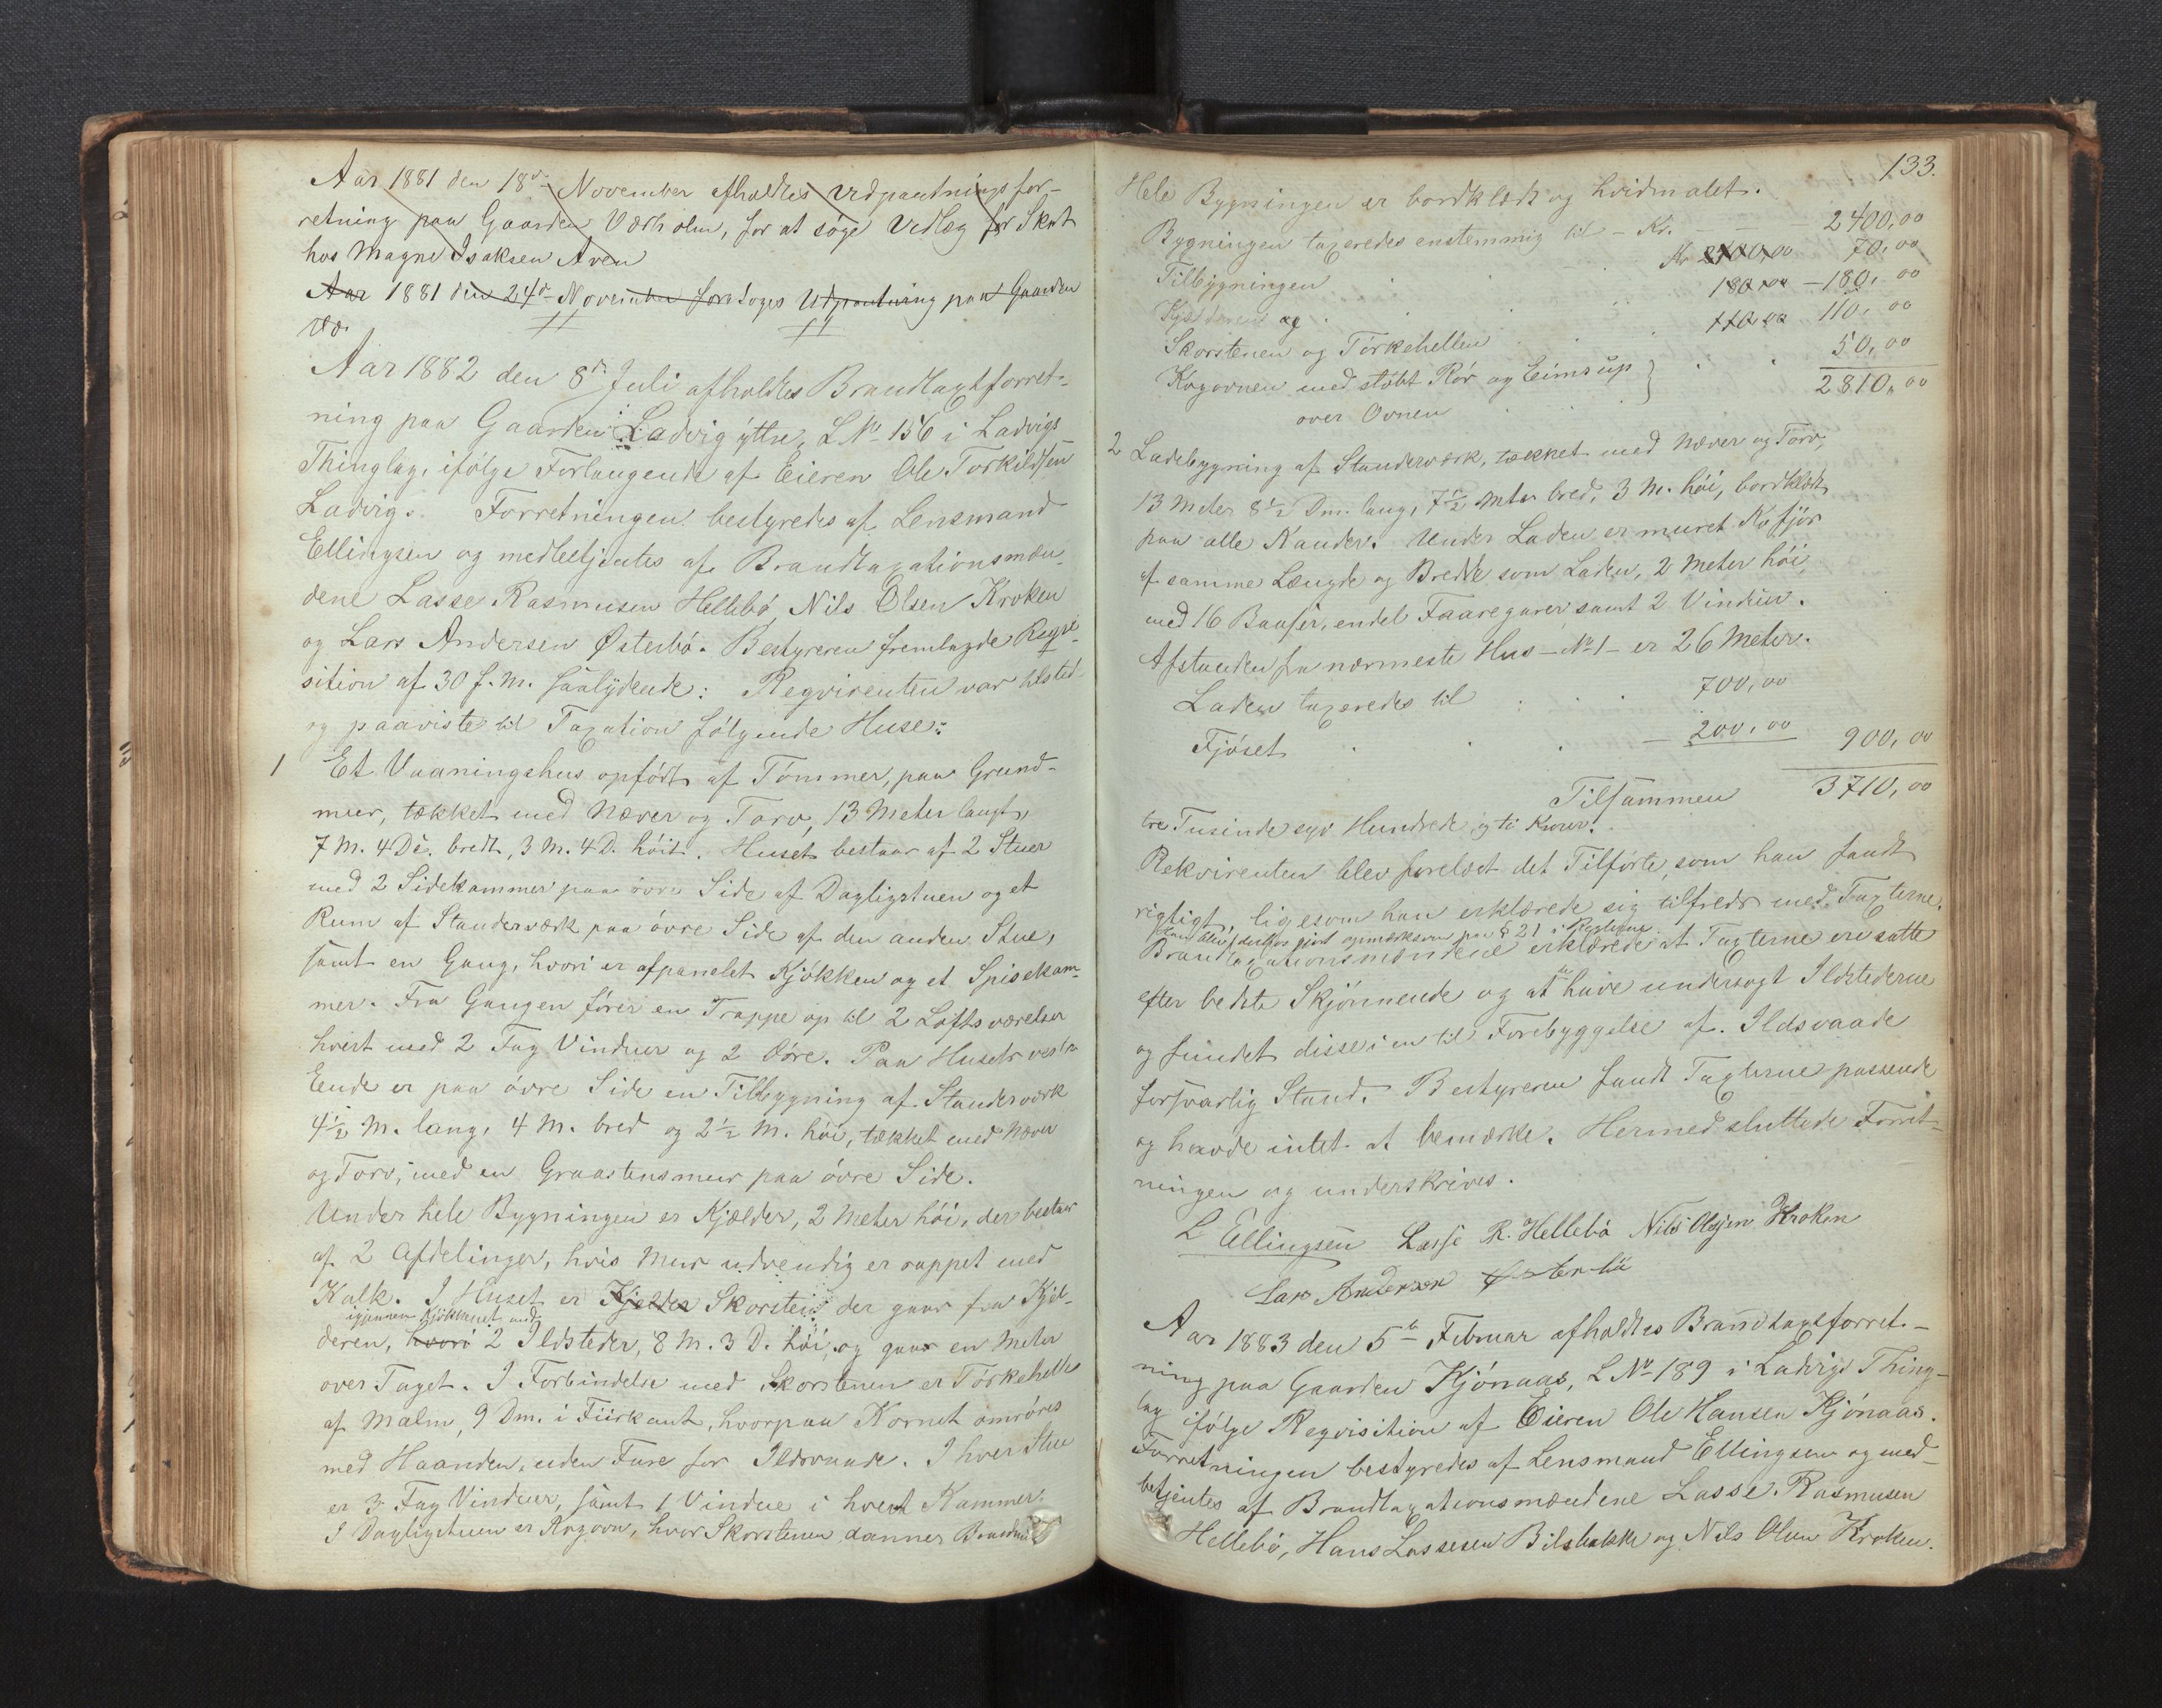 Aar 1881 den 18de November afholdtes Udpantningsfor-
retning paa Gaarden Værholm, for at söge Vedlæg for Skat
hos Magne Isaksen Aven
Aar 1881 den 24de November foretoges Udpantning paa Gaarden
Aar 1882 den 8de Juli afholdtes Brandtaxtforret-
ning paa Gaarden Ladvig yttre, L No 156 i Ladvigs
Thinglag, ifölge Forlangende af Eieren Ole Torkildsen
Ladvig. Forretningen bestyredes af Lensmand
Ellingsen og medbetjentes af Brandtaxationsmæn-
dene Lasse Rasmusen Hellebö, Nils Olsen Kroken
og Lars Andersen Østerbö. Bestyreren fremlagde Reqvi-
sition af 30 f. M. saalydende: Reqvirenten var tilsted
og paaviste til Taxation fölgende Huse:
1 Et Vaaningshus opfört af Tömmer, paa Grund-
muur, tækket med Næver og Torv, 13 Meter langt,
7 M. 4 De. bredt, 3 M. 4 D. höit. Huset bestaar af 2 Stuer
med 2 Sidekammer paa övre Side af Dagligstuen og et
Rum af Standerværk paa övre Side af den anden Stue,
samt en Gang, hvori er afpanelet Kjökken og et Spisekam-
mer. Fra Gangen förer en Trappe op til 2 Loftsværelser
hvert med 2 Fag Vinduer og 2 Döre. Paa Husets vestre
Ende er paa övre Side en Tilbygning af Standerværk
4½ M. lang, 4 M. bred og 2½ M. höi, tækket med Næver
og Torv, med en Graastensmur paa övre Side.
Under hele Bygningen er Kjælder, 2 Meter höi, der bestaar
af 2 Afdelinger, hvis Mur udvendig er rappet med
Kalk. I Huset er Kjelder Skorsten der gaar fra Kjel-
igjennem Kjökkenet med
deren, hvori 2 Ildsteder, 8 M. 3 D. höi, og gaar en Meter
over Taget. I Forbindelse med Skorstenen er Törkehelle
af Malm, 9 Dm. i Fiirkant, hvorpaa Kornet omröres
med Haanden, uden Fare for Ildsvaade. I hver Stue
er 3 Fag Vinduer, samt 1 Vindue i hvert Kammer.
I Dagligstuen er Kogovn, hvor Skorstenen danner Brandmur
133.
Hele Bygningen er bordklædt og hvidmalet.
Bygningen taxeredes enstemmig til - Kr. 2400,00
Tilbygningen Kr 2400,00 70,00
Kjælderen og 180,00 - 180,00
Skorstenen og Törkehellen 110,00 110,00
Kogovnen med stöbt Rör og Eimsup } 50,00
over Ovnen 2810,00
2 Ladebygning af Standerværk, tækket med Næver og Torv,
13 Meter 8½ Dm. lang, 7½ Meter bred, 3 M. höi, bordklædt
paa alle Kander. Under Laden er muret Kofjös
af samme Længde og Bredde som Laden, 2 Meter höi,
med 16 Baaser, endel Faaregarer samt 2 Vinduer.
Afstanden fra nærmeste Hus - No 1 - er 26 Meter.
Laden taxeredes til 700,00
Fjöset 200,00 900,00
Tilsammen 3710,00
tre Tusinde syv Hundrede og ti Kroner.
Rekvirenten blev forelæst det Tilförte, som han fandt
rigtigt, ligesom han erklærede sig tilfreds med Taxterne.
Han blev derhos gjort opmærksom paa § 21 i
Brandtaxationsmændene erklærede at Taxterne ere satte
efter bedste Skjönnende og at have undersögt Ildstederne
og fundet disse i en til Forebyggelse af Ildsvaade
forsvarlig Stand. Bestyreren fandt Taxterne passende
og havde intet at bemærke. Hermed sluttede Forret-
ningen og underskrives.
L Ellingsen Lasse R. Hellebö Nils Olsen Kroken
Lars Andersen Østerbö
Aar 1883 den 5te Februar afholdtes Brandtaxtforret-
ning paa Gaarden Kjönaas, L No 189 i Ladvigs Thing-
lag ifölge Reqvisition af Eieren Ole Hansen Kjönaas.
Forretningen bestyredes af Lensmand Ellingsen og med-
betjentes af Brandtaxationsmændene Lasse Rasmusen
Hellebö, Hans Lassesen Bilsbakke og Nils Olsen Kroken.